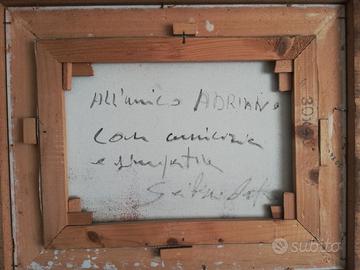 All'amico ADRIANO
Con amicizia
e simpatia
30x
subito